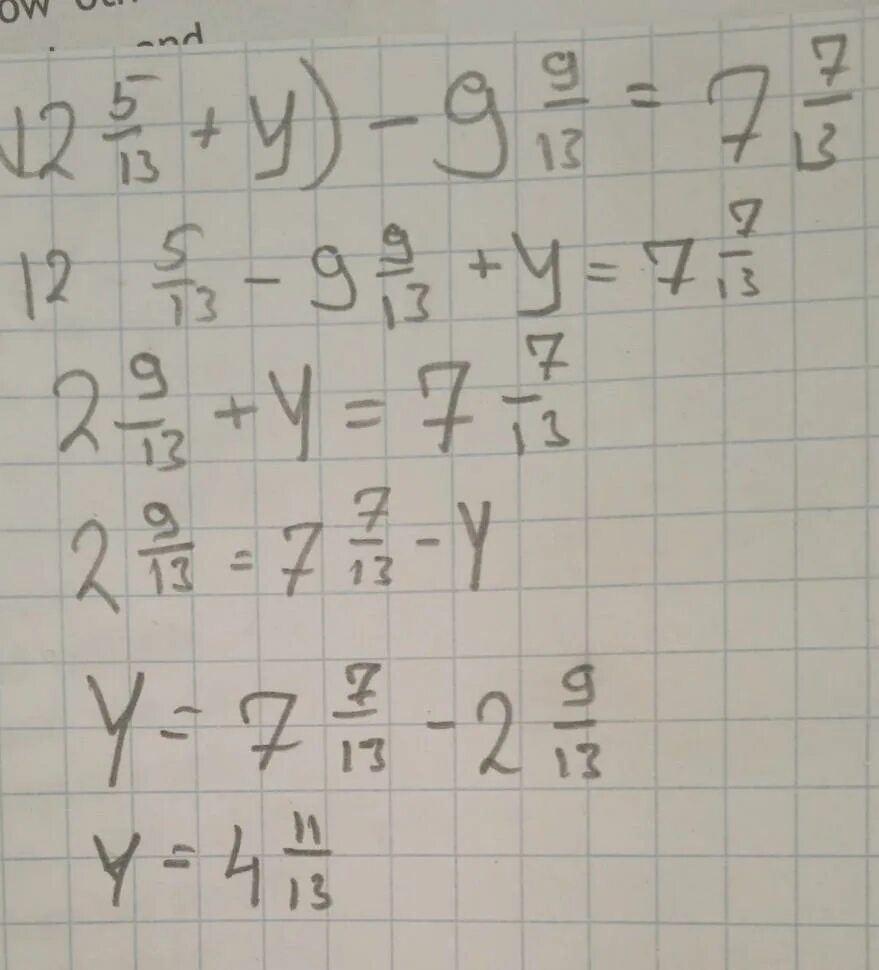 and
12 5/13 + y) - 9 9/13 = 7 7/13
12 5/13 - 9 9/13 + y = 7 7/13
2 9/13 + y = 7 7/13
2 9/13 = 7 7/13 - y
y = 7 7/13 - 2 9/13
y = 4 11/13